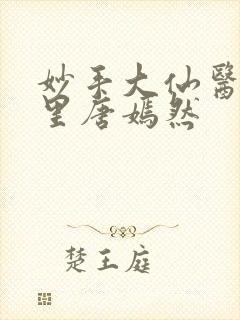 妙手大仙醫
里唐嫣然
楚王庭